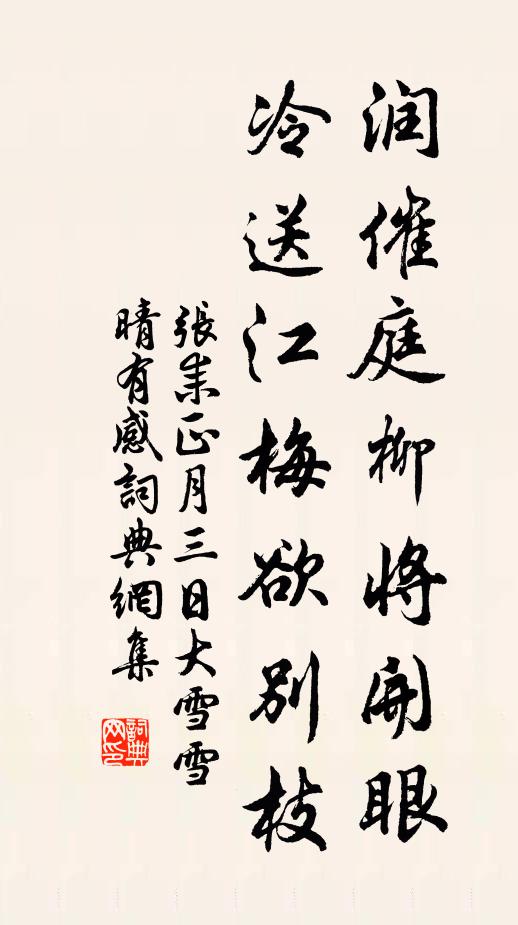 润催庭柳将開眼
冷送江梅欲别枝
張耒正月三日大雪雪
晴有感詞典網集
詞典网印